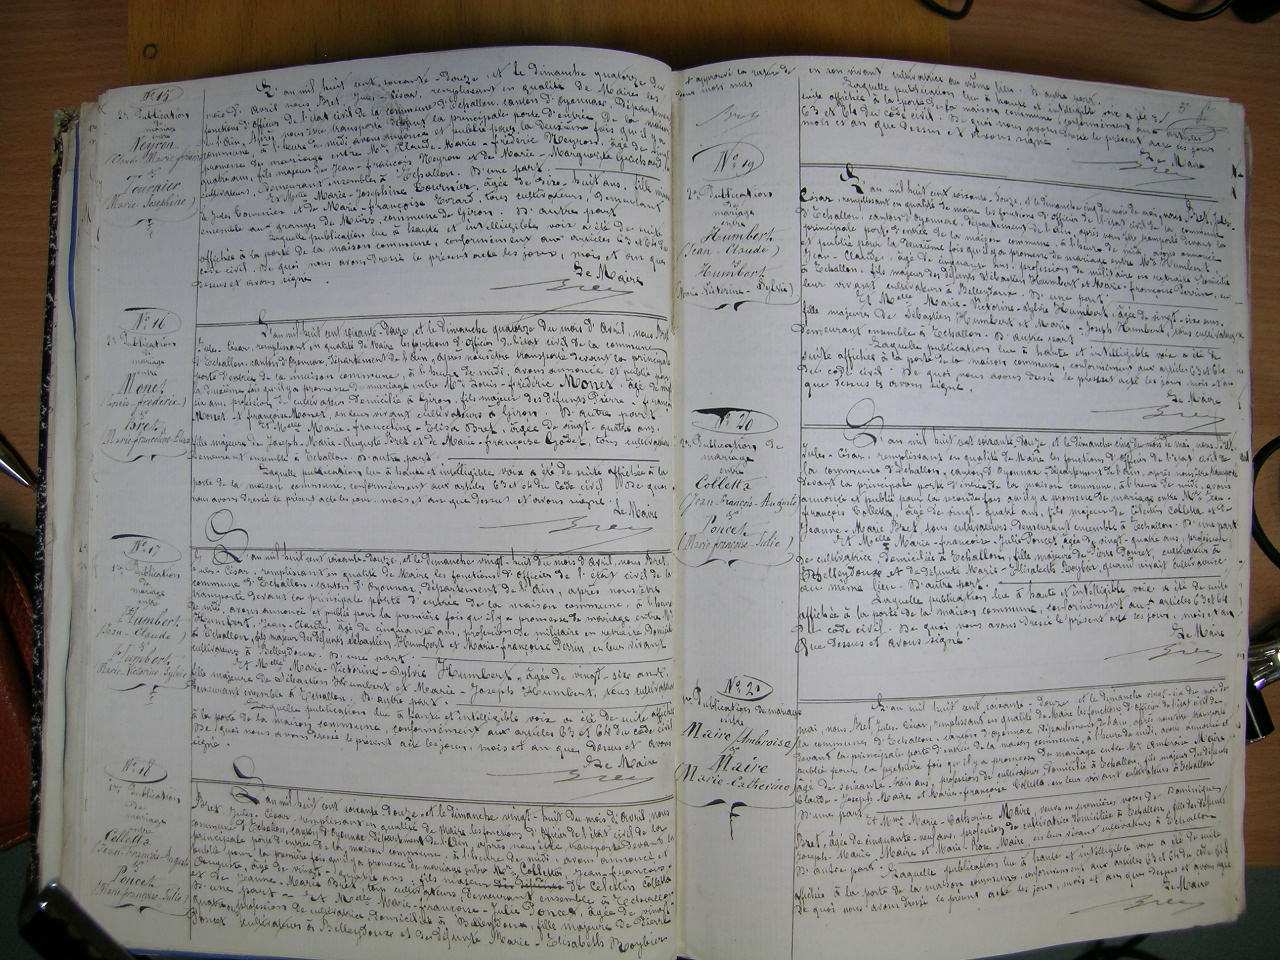 N° 15
2e Publication
de
mariage
entre
Neyron
(Claude Marie frédéric)
et
Tournier
(Marie Josephine)
L'an mil huit cent soixante-Douze, et le dimanche quatorze du
mois d'avril nous Bret Jules-César, remplissant en qualité de Maire les
fonctions d'officier de l'état civil de la commune d'Echallon, canton d'oyonnax, Département
de l'Ain, après nous être transporté devant la principale porte d'entrée de la maison
commune, à l'heure de midi avons annoncé et publié pour la deuxième fois qu'il y a
promesse de mariage entre Mr Claude-Marie-frédéric Neyron, âgé de
ans, fils majeur de Jean-françois Neyron et de Marie-Marguerite
cultivateurs, demeurant ensemble à Echallon. D'une part.
Et Melle Marie-Josephine Tournier, âgée de dix-huit ans, fille
de Jules Tournier et de Marie-françoise tous cultivateurs, demeurant
ensemble aux granges de commune de Giron. D'autre part
Laquelle publication lue à haute et intelligible voix a été de suite
affichée à la porte de la maison commune, conformément aux articles 63 et 64 du
code civil. De quoi nous avons dressé le présent acte les jour, mois et an que
dessus et avons signé.
Le Maire
Bret
N° 16
2e Publication
de
mariage
entre
Monet
(Louis-frédéric)
et
Bret
(Marie francéline Elisa)
L'an mil huit cent soixante Douze, et le dimanche quatorze du mois d'Avril, nous Bret
Jules-César, remplissant en qualité de Maire les fonctions d'officier de l'état civil de la commune
d'Echallon, canton d'Oyonnax, Département de l'Ain, après nous être transporté devant la principale
porte d'entrée de la maison commune, à l'heure de midi, avons annoncé et publié pour
la deuxième fois qu'il y a promesse de mariage entre Mr Louis-frédéric Monet, âgé de
ans, profession de cultivateur Domicilié à Giron, fils majeur des défunts Pierre-françois
Monet et françoise Monet, en leur vivant cultivateurs à Giron. D'autre part
Et Melle Marie-francéline-Elisa Bret, âgée de vingt-quatre ans,
fille majeure de Joseph-Marie-Auguste Bret et de Marie-françoise tous cultivateurs
Demeurant ensemble à Echallon D'autre part.
Laquelle publication lue à haute et intelligible voix a été de suite affichée à la
porte de la maison commune, conformément aux articles 63 et 64 du Code civil De quoi
nous avons dressé le présent acte les jour, mois et an que dessus et avons signé.
Le Maire
Bret
N° 17
1re Publication
de
mariage
entre
Humbert
(Jean-Claude)
et
Humbert
(Marie-Victorine Sylvie)
L'an mil huit cent soixante Douze, et le dimanche vingt-huit du mois d'Avril, nous Bret
Jules-César, remplissant en qualité de Maire les fonctions d'officier de l'état civil de la
commune d'Echallon, canton d'Oyonnax, département de l'Ain, après nous être
transporté devant la principale porte d'entrée de la maison commune, à l'heure
de midi, avons annoncé et publié pour la première fois qu'il y a promesse de mariage entre Mr
Humbert, Jean-Claude, âgé de cinquante ans, profession de militaire en retraite Domicilié
à Echallon, fils majeur des défunts Sébastien Humbert et Marie-françoise Perrin, en leur vivant
cultivateurs à Belleydoux. D'une part.
Et Melle Marie-Victorine-Sylvie Humbert, âgée de vingt-six ans.
fille majeure de Sébastien Humbert et Marie-Joseph Humbert, tous cultivateurs
Demeurant ensemble à Echallon. D'autre part.
Laquelle publication lue à haute et intelligible voix a été de suite affichée
à la porte de la maison commune, conformément aux articles 63 et 64 du code civil
De quoi nous avons dressé le présent acte les jour, mois et an que dessus et avons
signé.
Le Maire
Bret
N° 18
1re Publication
de
mariage
entre
Colletta
(Jean-françois-Auguste)
et
Poncet
(Marie françoise-Julie)
L'an mil huit cent soixante Douze, et le dimanche vingt-huit du mois d'Avril nous
Bret Jules-César, remplissant en qualité de Maire les fonctions d'officier de l'état civil de la
commune d'Echallon, canton d'Oyonnax département de l'Ain, après nous être transporté devant la
principale porte d'entrée de la maison commune, à l'heure de midi, avons annoncé et
publié pour la première fois qu'il y a promesse de mariage entre Mr Colletta Jean-françois
Auguste, âgé de vingt-quatre ans, fils majeur de Célestin Colletta
et de Jeanne-Marie Bret, tous cultivateurs demeurant ensemble à Echallon
D'une part — et Melle Marie-françoise-Julie Poncet, âgée de vingt-
quatre ans profession de cultivatrice domiciliée à Belleydoux, fille majeure de Pierre
Poncet cultivateur à Belleydoux et de défunte Marie-Elisabeth
et approuvé la rature de
deux mots nuls
Bret
en son vivant cultivatrice au même lieu. D'autre part.
Laquelle publication lue à haute et intelligible voix a été de
suite affichée à la porte de la maison commune, conformément aux articles
63 et 64 du code civil. De quoi nous avons dressé le présent acte les jour
mois et an que dessus et avons signé.
Le Maire
Bret
N° 19
2e Publication
de
mariage
entre
Humbert
(Jean-Claude)
et
Humbert
(Marie-Victorine-Sylvie)
L'an mil huit cent soixante Douze, et le dimanche cinq du mois de mai, nous Bret, Jules
César, remplissant en qualité de maire les fonctions d'officier de l'état civil de la commune
d'Echallon, canton d'Oyonnax, Département de l'Ain, après nous être transporté devant la
principale porte d'entrée de la maison commune, à l'heure de midi, avons annoncé
et publié pour la deuxième fois qu'il y a promesse de mariage entre Mr Humbert,
Jean-Claude, âgé de cinquante ans, profession de militaire en retraite Domicilié
à Echallon, fils majeur des défunts Sébastien Humbert et Marie-françoise Perrin, en
leur vivant cultivateurs à Belleydoux. D'une part.
Et Melle Marie-Victorine-Sylvie Humbert, âgée de vingt-six ans.
fille majeure de Sébastien Humbert et Marie-Joseph Humbert, tous cultivateurs
Demeurant ensemble à Echallon. D'autre part
Laquelle publication lue à haute et intelligible voix a été de
suite affichée à la porte de la maison commune, conformément aux articles 63 et 64
du code civil. De quoi nous avons dressé le présent acte les jour, mois et an
que dessus et avons signé.
Le Maire
Bret
N° 20
2e Publication de
mariage
entre
Colletta
(Jean-François-Auguste)
et
Poncet
(Marie françoise-Julie)
L'an mil huit cent soixante Douze et le dimanche cinq du mois de mai, nous Bret
Jules-César, remplissant en qualité de Maire les fonctions d'officier de l'état civil de
la commune d'Echallon, canton d'Oyonnax, département de l'Ain, après nous être transporté
devant la principale porte d'entrée de la maison commune, à l'heure de midi, avons
annoncé et publié pour la seconde fois qu'il y a promesse de mariage entre Mr Jean-
françois Colletta, âgé de vingt-quatre ans, fils majeur de Célestin Colletta et de
Jeanne-Marie Bret tous cultivateurs demeurant ensemble à Echallon. D'une part
Et Melle Marie-françoise-Julie Poncet, âgée de vingt-quatre ans, profession
de cultivatrice Domiciliée à Echallon, fille majeure de Pierre Poncet, cultivateur à
Belleydoux et de défunte Marie-Elisabeth en son vivant cultivatrice
au même lieu. D'autre part.
Laquelle publication lue à haute et intelligible voix a été de suite
affichée à la porte de la maison commune, conformément aux articles 63 et 64
du code civil. De quoi nous avons dressé le présent acte les jour, mois et an
que dessus et avons signé.
Le Maire
Bret
N° 21
1re Publication de mariage
entre
Maire (Ambroise)
et
Maire
(Marie-Catherine)
L'an mil huit cent soixante-Douze, et le dimanche vingt-six du mois de
mai, nous Bret Jules, César, remplissant en qualité de Maire les fonctions d'officier de l'état civil de
la commune d'Echallon, canton d'Oyonnax département de l'Ain, après nous être transporté
devant la principale porte d'entrée de la maison commune, à l'heure de midi, avons annoncé et
publié pour la première fois qu'il y a promesse de mariage entre Mr Ambroise Maire,
âgé de soixante-trois ans, profession de cultivateur Domicilié à Echallon, fils majeur des défunts
Claude-Joseph Maire et Marie-françoise Colletta en leur vivant cultivateurs à Echallon
D'une part.
Et Mme Marie-Catherine Maire, veuve en premières noces de Dominique
Bret, âgée de cinquante-neuf ans, profession de cultivatrice Domiciliée à Echallon, fille des défunts
Joseph-Marie Maire et Marie-Rose Maire en leur vivant cultivateurs à Echallon
D'autre part. Laquelle publication lue à haute et intelligible voix a été de suite
affichée à la porte de la maison commune, conformément aux articles 63 et 64 du code civil
De quoi nous avons dressé le présent acte les jour, mois et an que dessus et avons signé
Le Maire
Bret